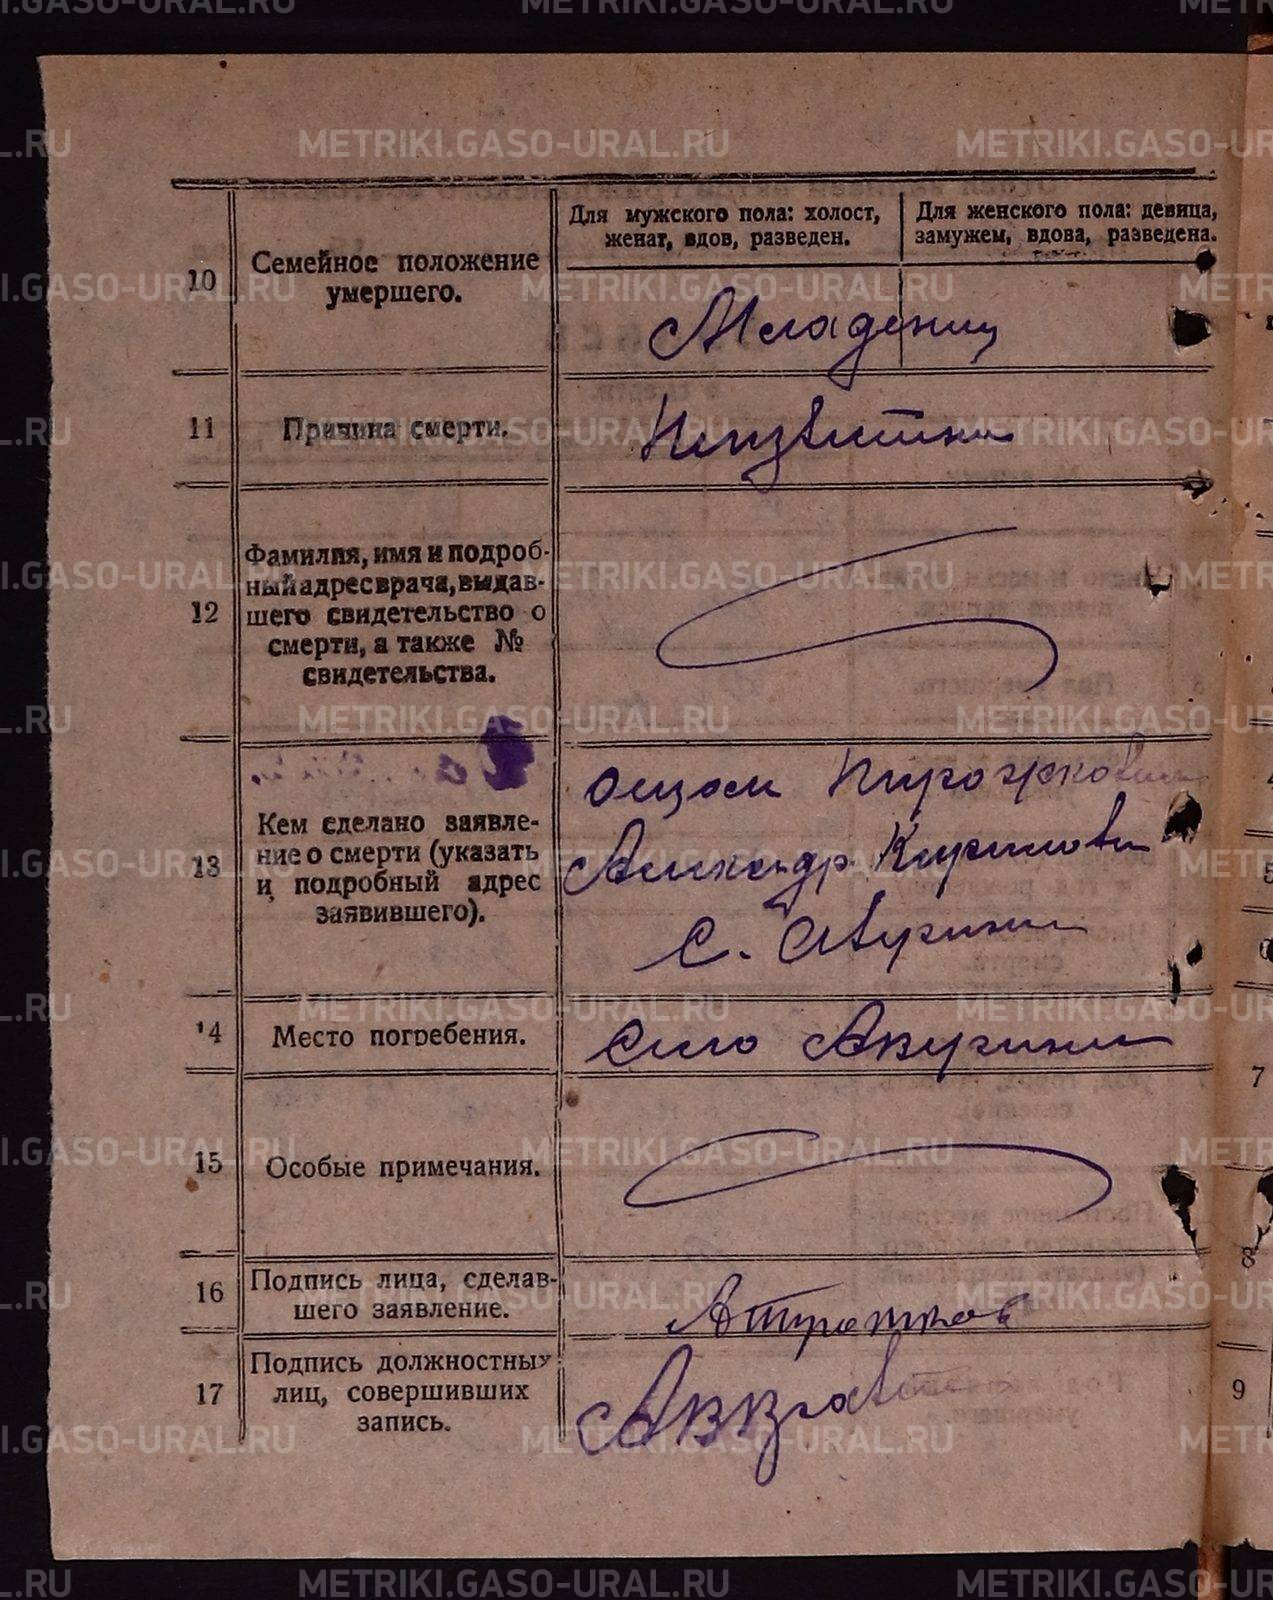 Для мужского пола: холост,
женат, вдов, разведен.
Для женского пола: девица,
замужем, вдова, разведена.
10
Семейное положение
умершего.
Младениц
11
Причина смерти.
Неизвестна
12
Фамилия, имя и подроб-
ный адрес врача, выдав-
шего свидетельство о
смерти, а также №
свидетельства.
13
Кем сделано заявле-
ние о смерти (указать
и подробный адрес
заявившего).
отцом
Александр Кирилови
с.
14
Место погребения.
Село
15
Особые примечания.
16
Подпись лица, сделав-
шего заявление.
17
Подпись должностных
лиц, совершивших
запись.
7
8
9
METRIKI.GASO-URAL.RU